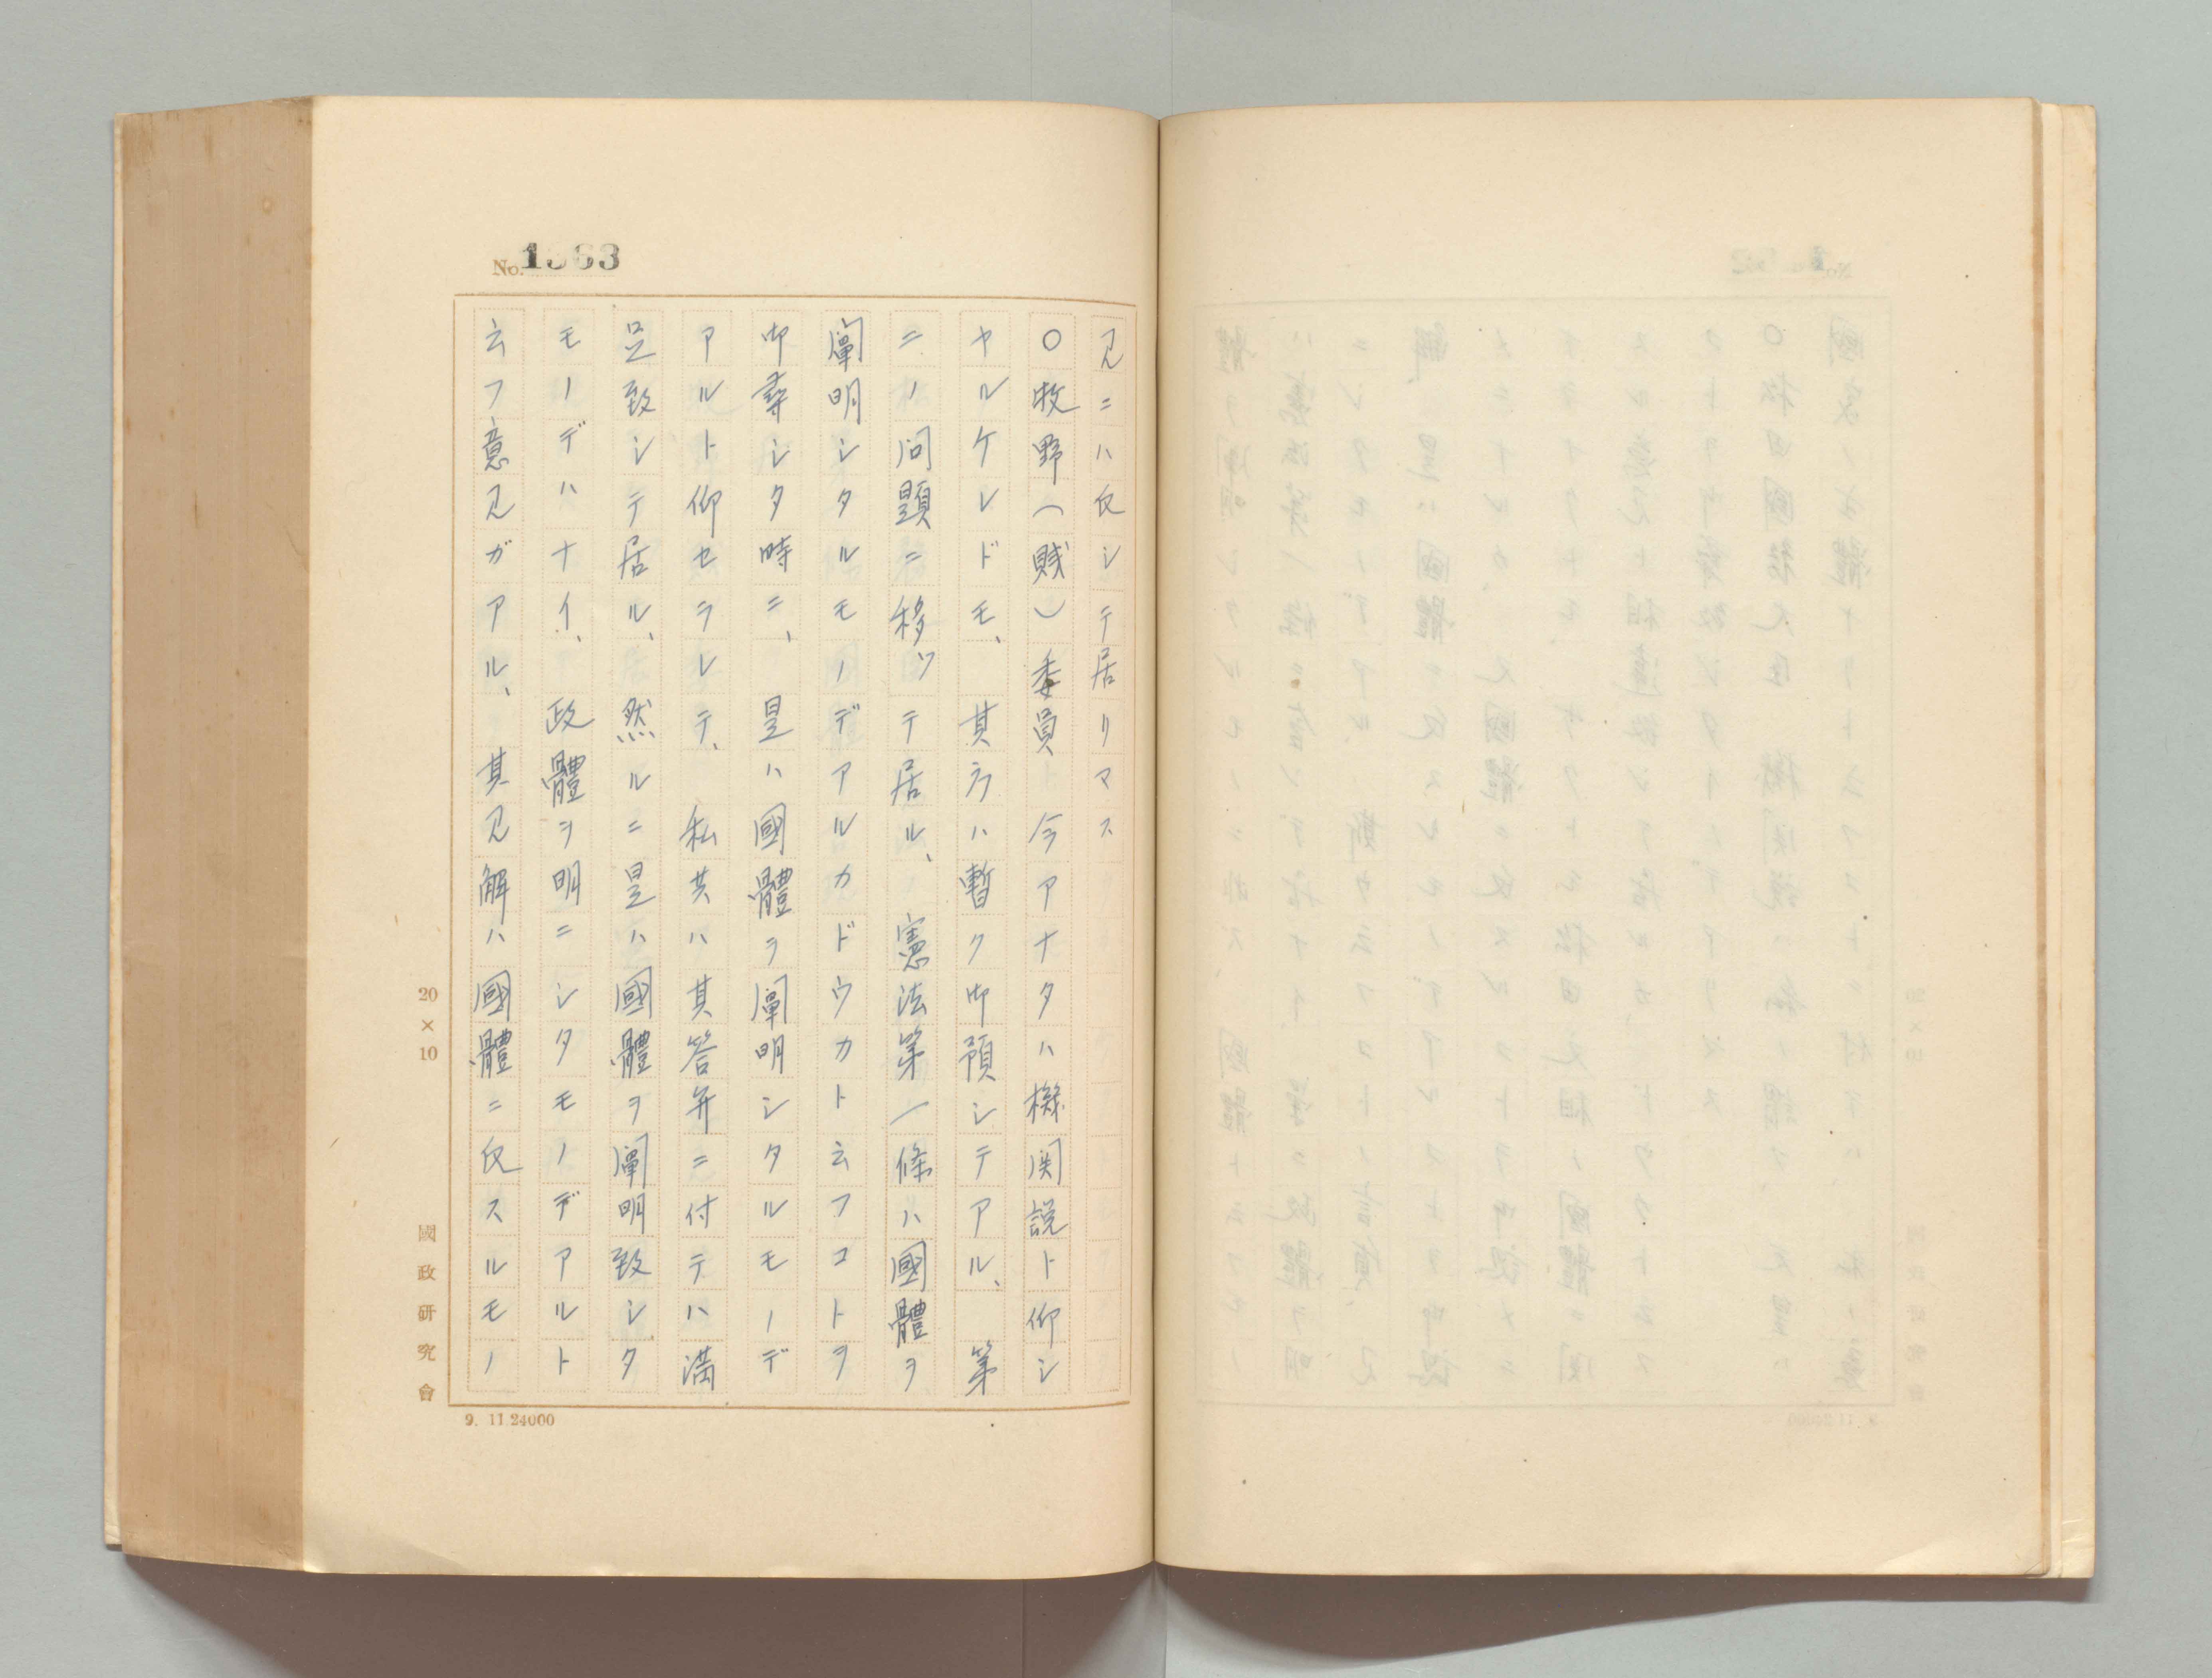 No. 1563
見ニハ反シテ居リマス
○牧野(賤)委員 今アナタハ機関説ト仰シ
ヤルケレドモ、其方ハ暫ク御預シテアル、第
二ノ問題ニ移ツテ居ル、憲法第一條ハ國體ヲ
闡明シタルモノデアルカドウカト云フコトヲ
御尋シタ時ニ、是ハ國體ヲ闡明シタルモノデ
アルト仰セラレテ、私共ハ其答弁ニ付テハ満
足致シテ居ル、然ルニ是ハ國體ヲ闡明致シタ
モノデハナイ、政體ヲ明ニシタモノデアルト
云フ意見ガアル、其見解ハ國體ニ反スルモノ
20×10
國政研究會
9. 11.24000